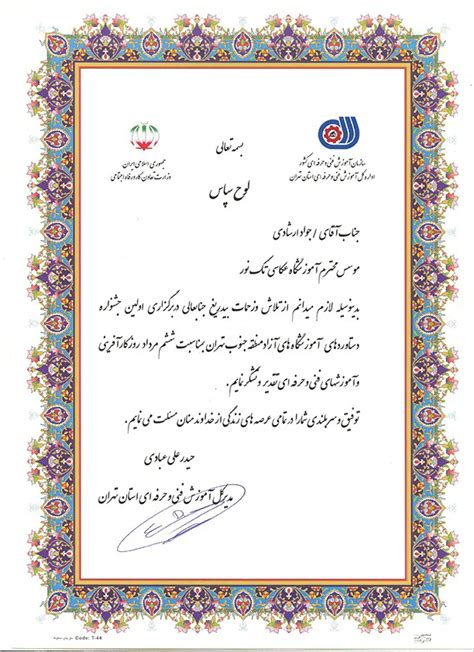 بسمه تعالی
سازمان آموزش فنی و حرفه ای کشور
اداره کل آموزش فنی و حرفه ای استان تهران
جمهوری اسلامی ایران
وزارت تعاون کار و رفاه اجتماعی
لوح سپاس
جناب آقای / جواد ارشادی
موسس محترم آموزشگاه عکاسی تک نور
بدینوسیله لازم میدانم از تلاش و زحمات بیدریغ جنابعالی در برگزاری اولین جشنواره
دستاوردهای آموزشگاه های آزاد منطقه جنوب تهران بمناسبت ششم مرداد روز کارآفرینی
و آموزشهای فنی و حرفه ای تقدیر و تشکر نمایم.
توفیق و سربلندی شما را در تمامی عرصه های زندگی از خداوند منان مسئلت می نمایم.
حیدر علی عبادی
مدیرکل آموزش فنی و حرفه ای استان تهران
Code: T-44